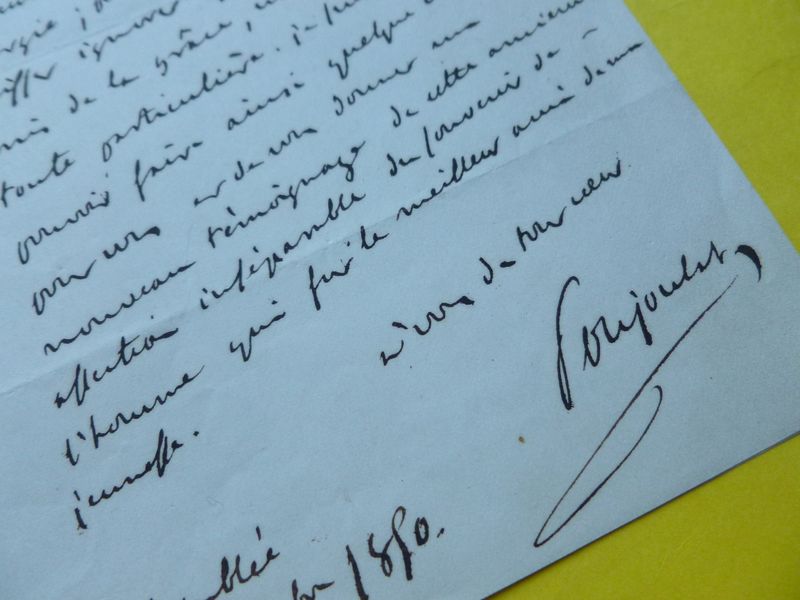 ignorer
de la grâce,
toute particulière. je
pouvoir faire ainsi quelque
pour vous et de vous donner un
nouveau témoignage de cette ancienne
affection inséparable du souvenir de
l'homme qui fut le meilleur ami de ma
jeunesse.
à vous de tout cœur
Poujoulat,
1850.